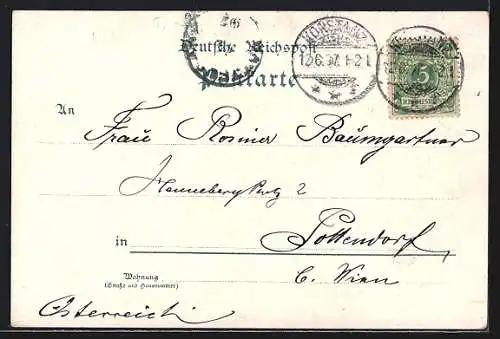 Deutsche Reichspost
Postkarte
KONSTANZ
12.6.97. 1-2 N.
5
An
Frau Rosina Baumgartner
2
in Pottendorf
b. Wien
Wohnung
(Straße und Hausnummer)
Österreich